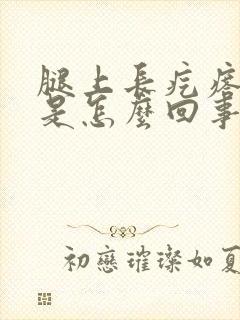 腿上長疙瘩
是怎麼回事
初戀璀璨如夏